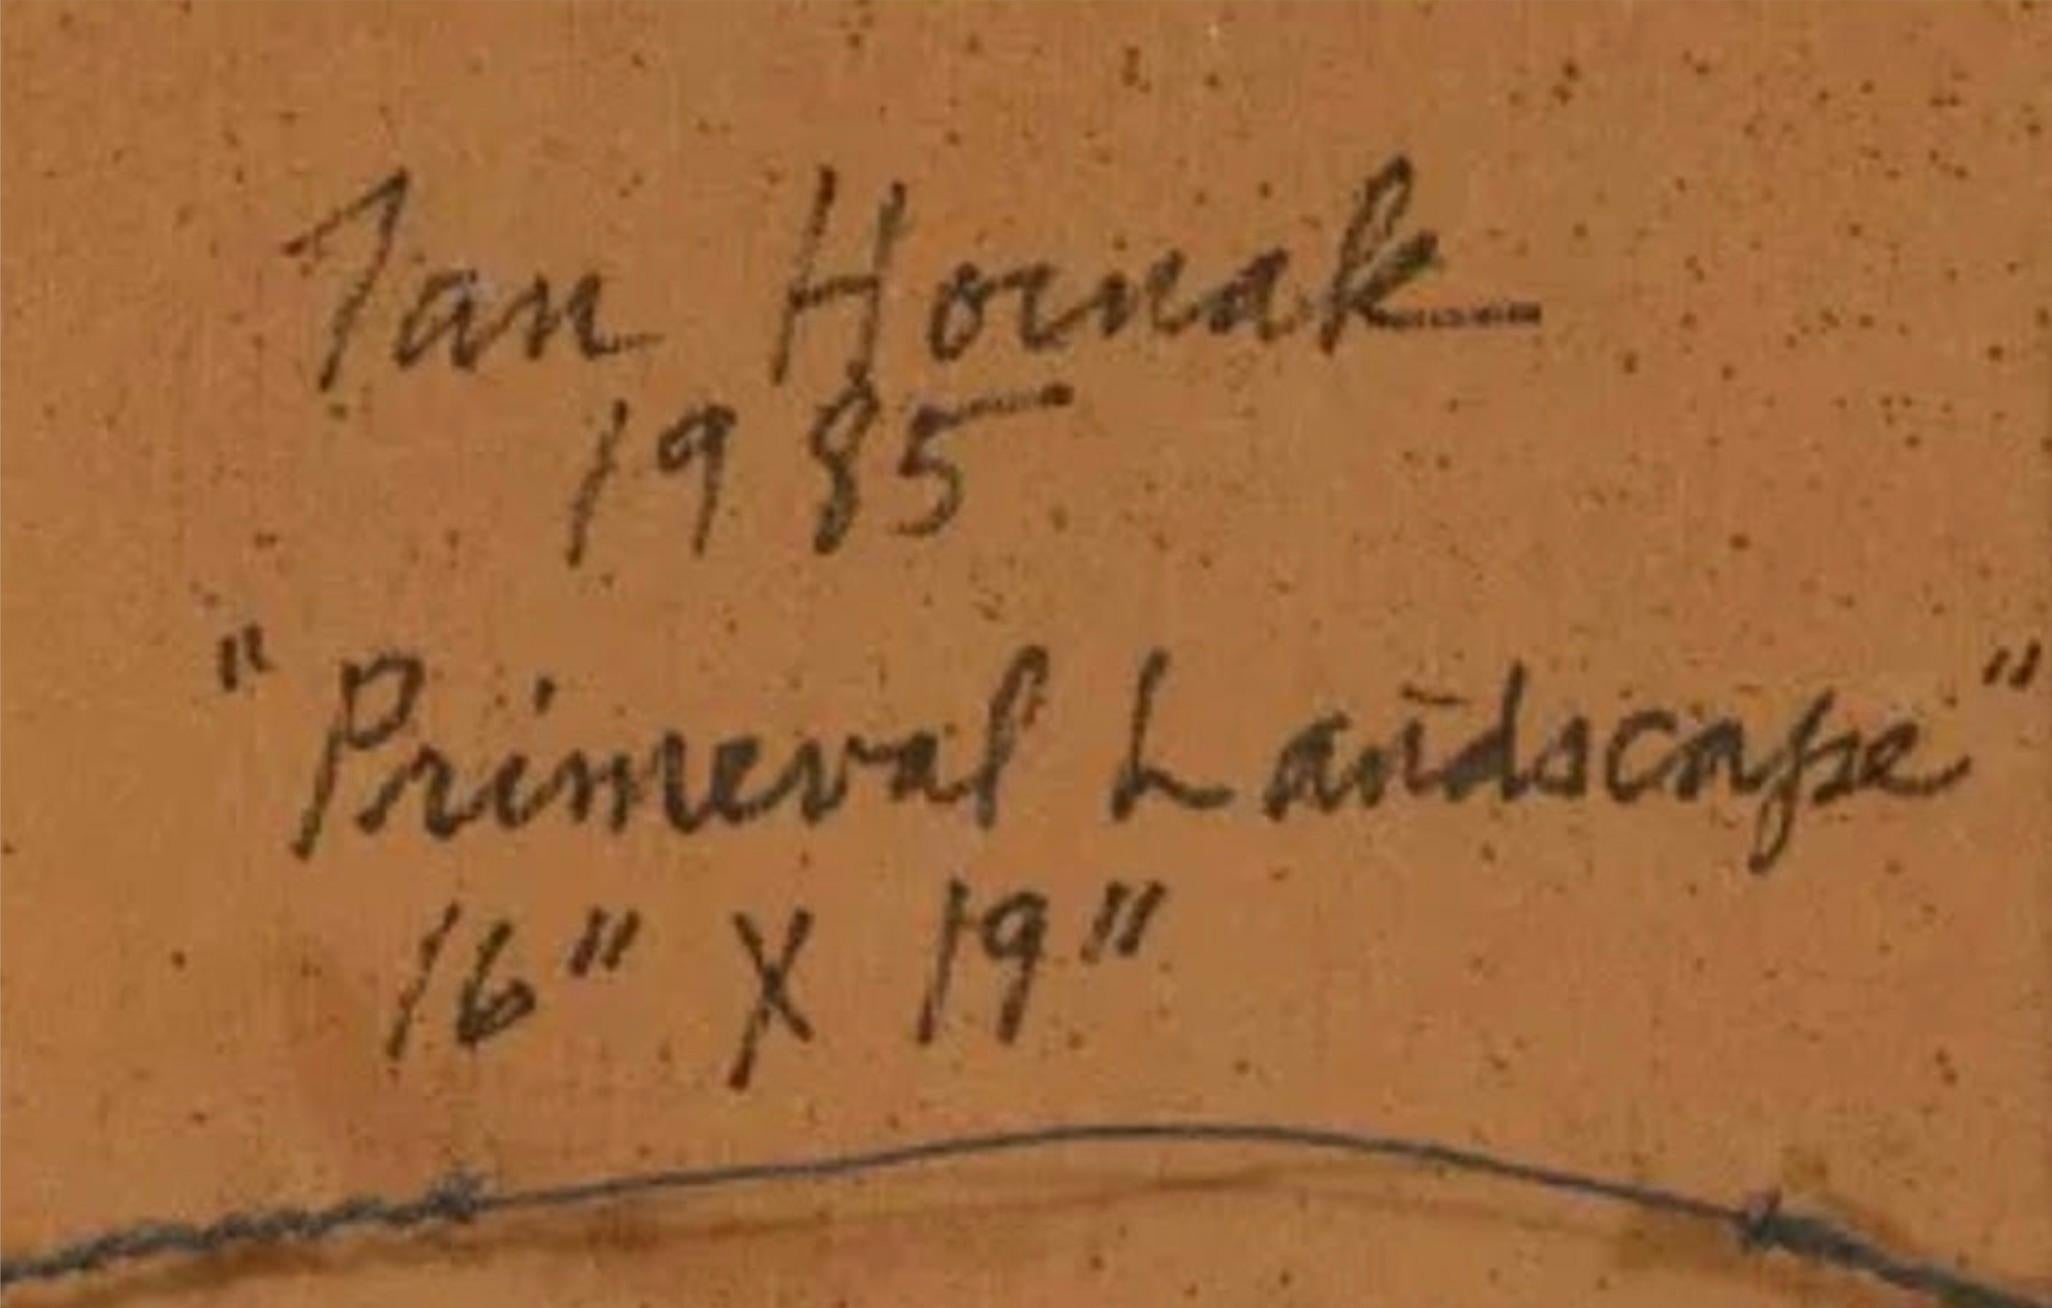 Ian Hornak
1985
"Primeval Landscape"
16" X 19"